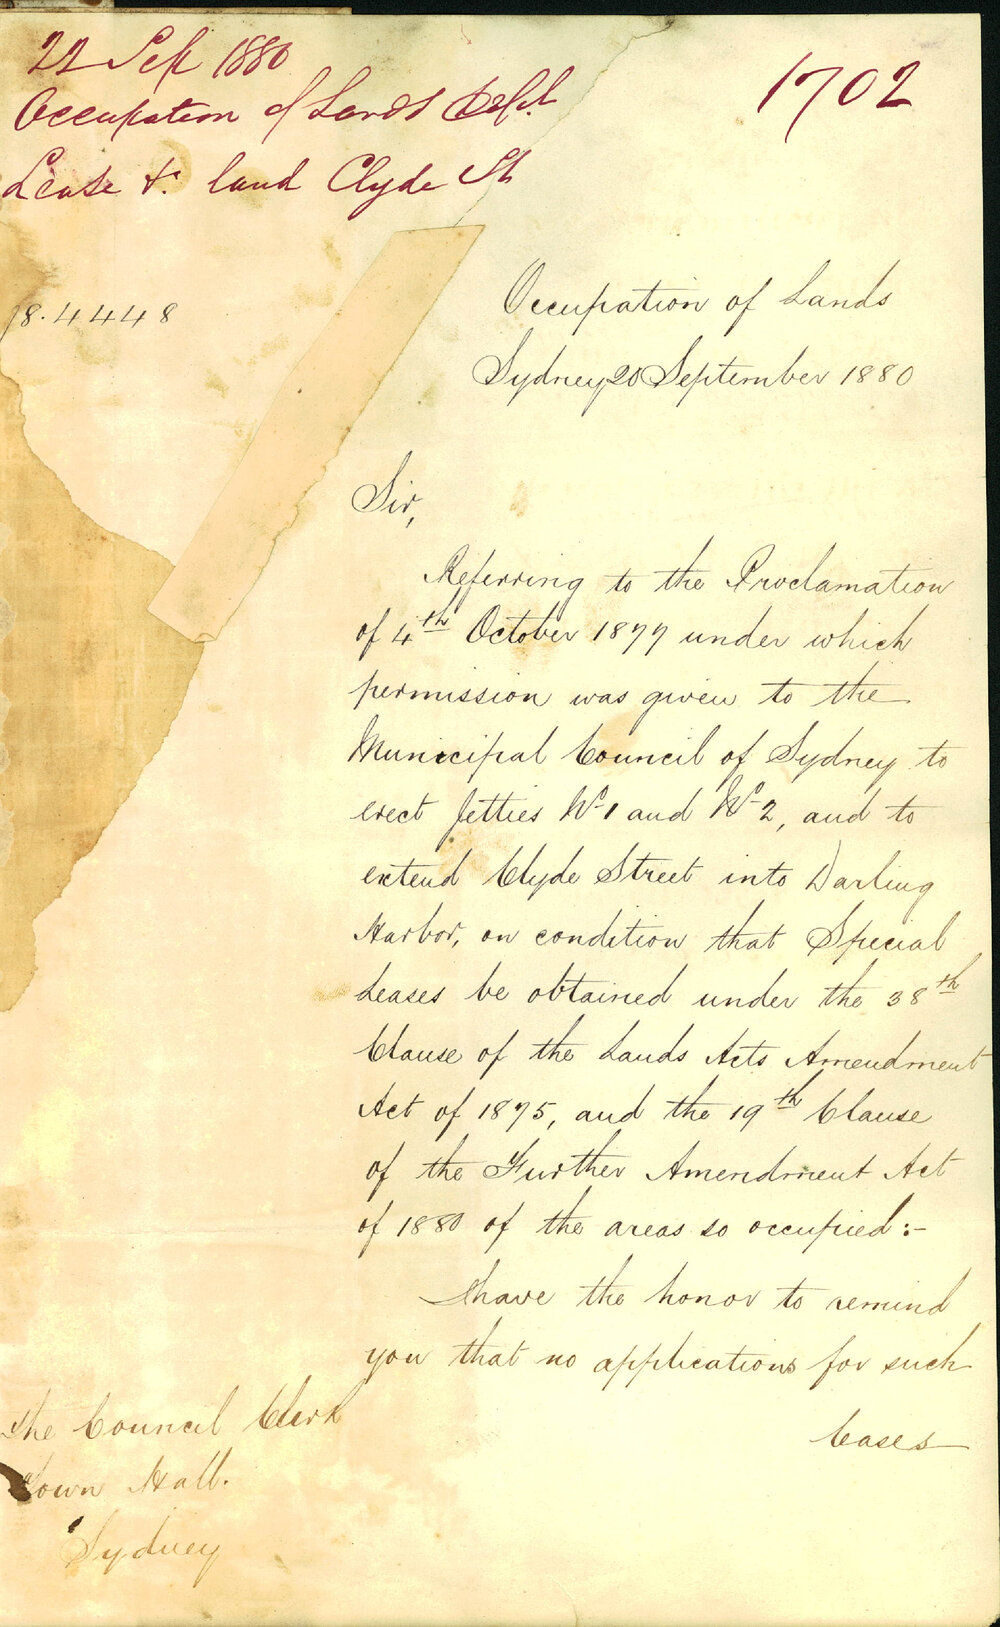 22 Sep 1880
Occupation of Lands Dept.
Lease &c land Clyde St
1702
78.4448
Occupation of Lands
Sydney 20 September 1880
Sir,
Referring to the Proclamation
of 4th October 1877 under which
permission was given to the
Municipal Council of Sydney to
erect Jetties No 1 and No 2, and to
extend Clyde Street into Darling
Harbor, on condition that Special
Leases be obtained under the 38th
Clause of the Lands Acts Amendment
Act of 1875, and the 19th Clause
of the Further Amendment Act
of 1880 of the areas so occupied:-
I have the honor to remind
you that no applications for such
Cases
The Council Clerk
Town Hall.
Sydney